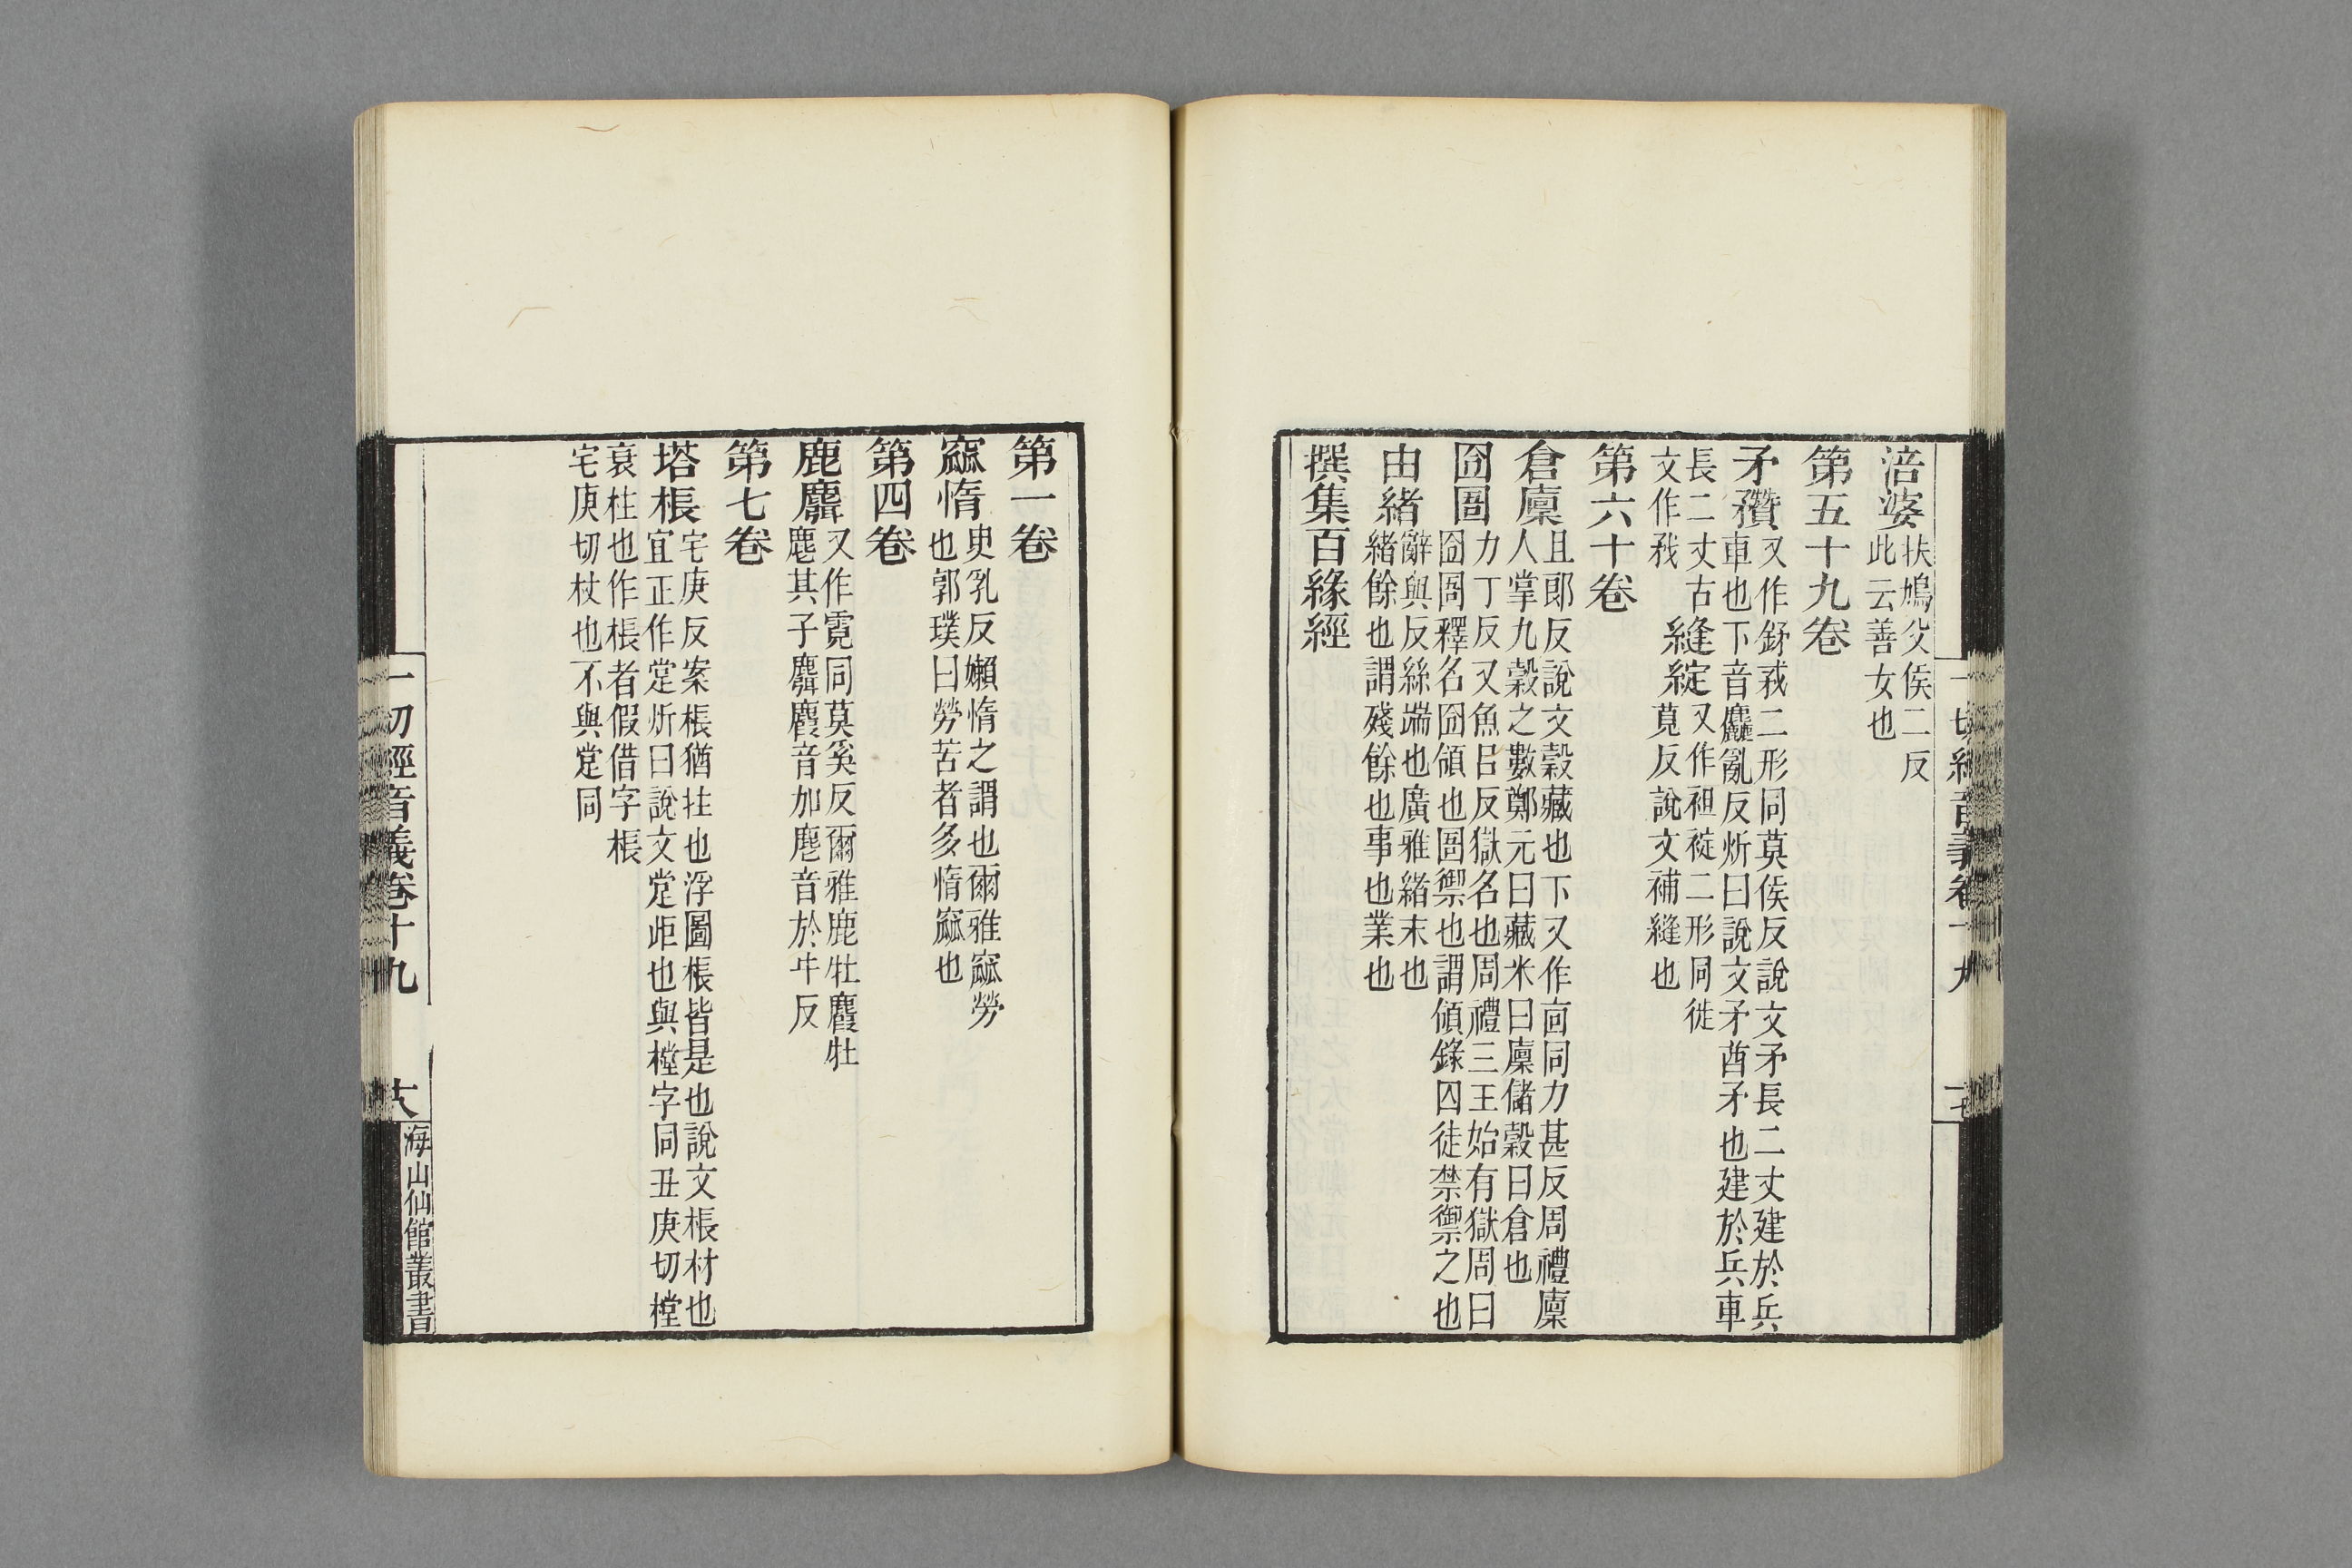 涪婆扶鳩父侯二反
此云善女也
第五十九卷
矛䂎又作鉾𢦧二形同莫侯反說文矛長二丈建於兵
車也下音麤亂反炘曰說文矛酋矛也建於兵車
長二丈古
文作𢦧
縫綻又作袒䘺二形同徙
莧反說文補縫也
第六十卷
倉廩且郎反說文穀藏也下又作㐭同力甚反周禮廩
人掌九穀之數鄭元曰藏米曰廩儲穀曰倉也
囹圄力丁反又魚呂反獄名也周禮三王始有獄周曰
囹圄釋名囹領也圄禦也謂領錄囚徒禁禦之也
由緒辭與反絲端也廣雅緒末也
緒餘也謂殘餘也事也業也
撰集百緣經
一切經音義卷十九
十七
第一卷
窳惰臾乳反嬾惰之謂也爾雅窳勞
也郭璞曰勞苦者多惰窳也
第四卷
鹿麛又作麑同莫奚反爾雅鹿牡麚牝
麀其子麛麚音加麀音於牛反
第七卷
塔棖宅庚反案棖猶拄也浮圖棖皆是也說文棖材也
宜正作㲂炘曰說文㲂歫也與樘字同丑庚切樘
衺柱也作棖者假借字棖
宅庚切杖也不與㲂同
一切經音義卷十九
十八
海山仙館叢書